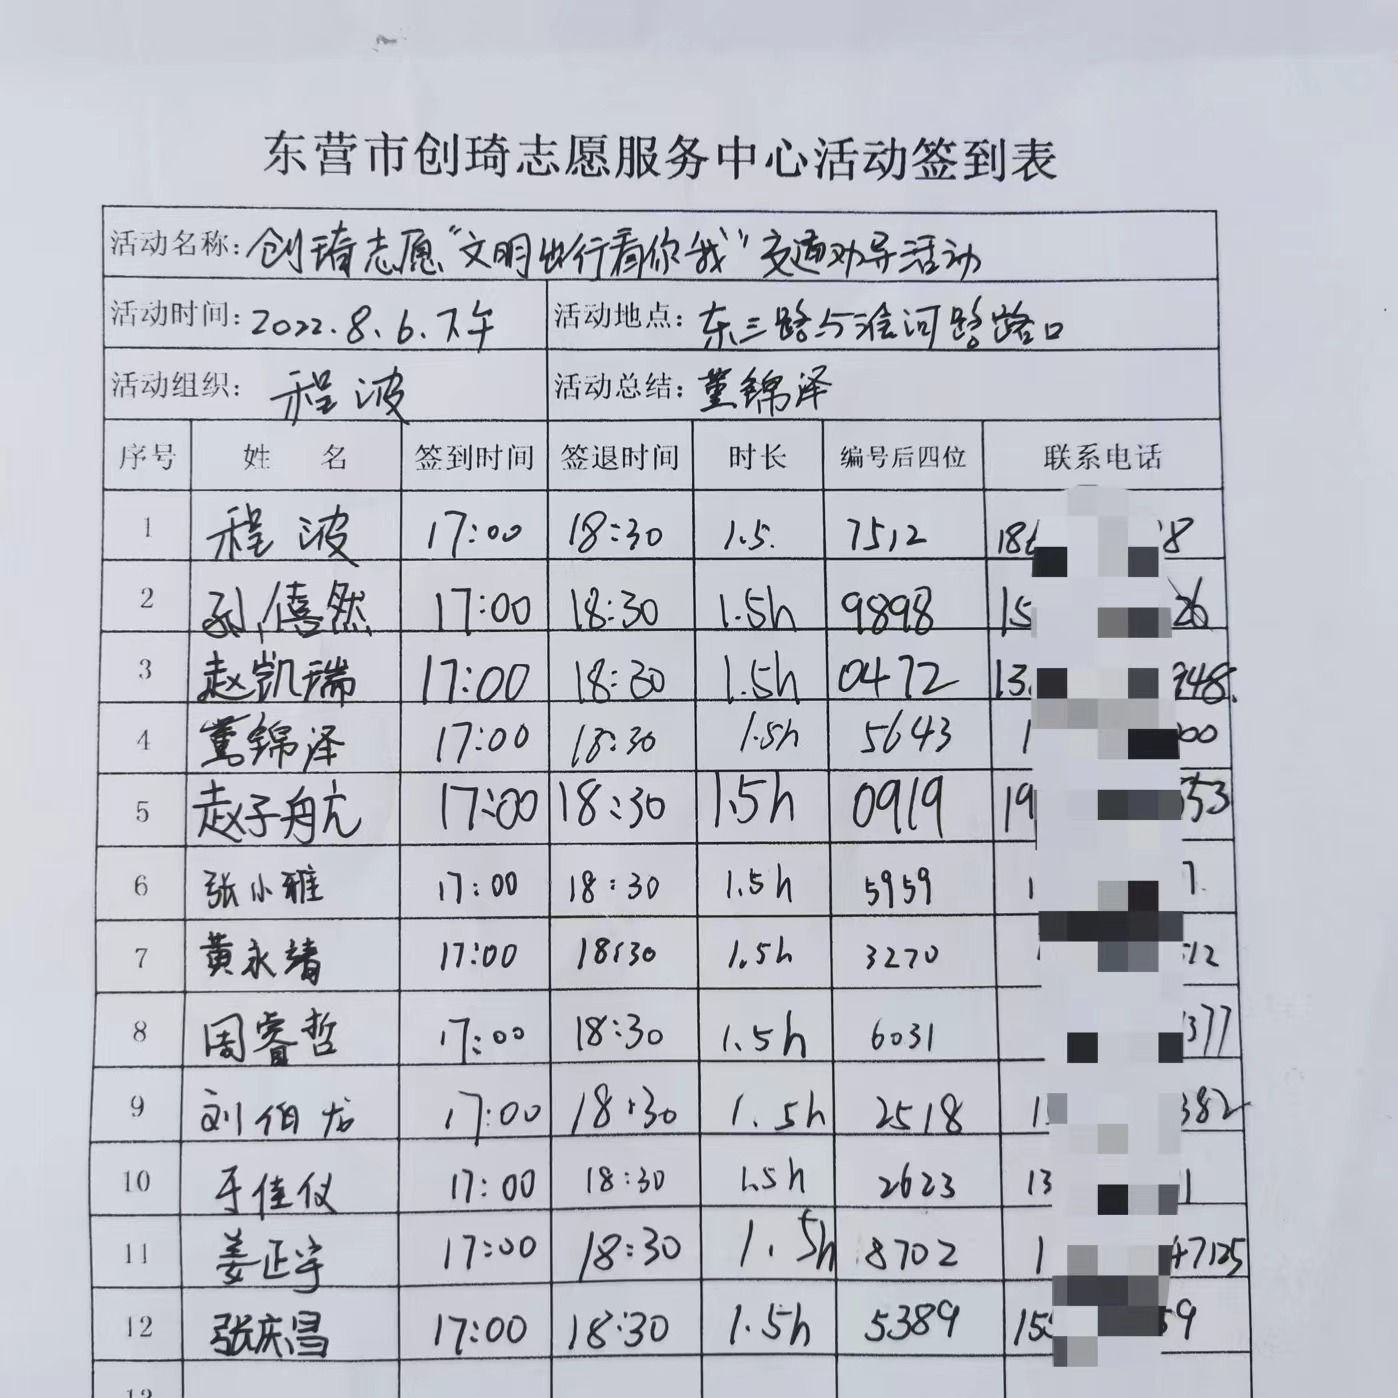 东营市创琦志愿服务中心活动签到表
活动名称: 创琦志愿"文明出行看你我"交通劝导活动
活动时间: 2022.8.6.下午 活动地点: 东三路与淮河路路口
活动组织: 程波 活动总结: 董锦泽
序号 姓名 签到时间 签退时间 时长 编号后四位 联系电话
1 程波 17:00 18:30 1.5. 7512 18 8
2 孙僖然 17:00 18:30 1.5h 9898 15 26
3 赵凯瑞 17:00 18:30 1.5h 0472 13. 248.
4 董锦泽 17:00 18:30 1.5h 5643 1 00
5 赵子舟亢 17:00 18:30 1.5h 0919 19 353
6 张小雅 17:00 18:30 1.5h 5959 1 7.
7 黄永靖 17:00 18:30 1.5h 3270 12
8 周睿哲 17:00 18:30 1.5h 6031 377
9 刘伯龙 17:00 18:30 1.5h 2518 1 382
10 于佳仪 17:00 18:30 1.5h 2623 13 1
11 姜正宇 17:00 18:30 1.5h 8702 1 47125
12 张庆昌 17:00 18:30 1.5h 5389 15 59
13